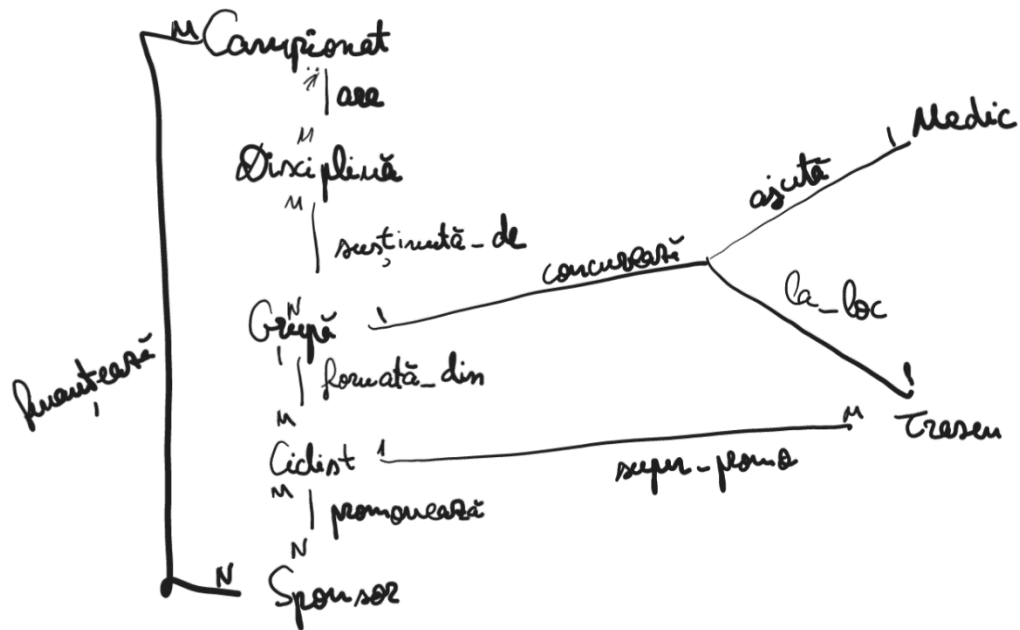 M Campionat
are
M
Disciplină
M
susținută_de
N
Grupă 1
1
formată_din
M
Ciclist 1
M
promovează
N
N Sponsor
finanțează
concurează
ajută
1 Medic
la_loc
1
Traseu
M
super_promo